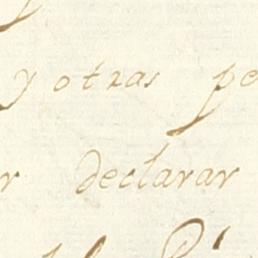 y otras pe
r declarar